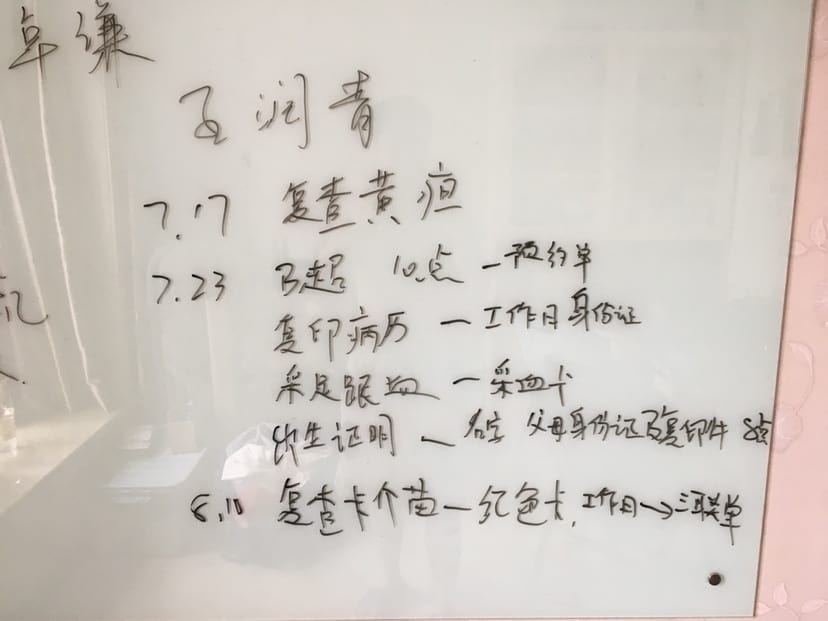 润青
7.17 复查黄疸
7.23 B超 10点 — 预约单
复印病历 — 工作日 身份证
采足跟血 — 采血卡
出生证明 — 名字 父母身份证及复印件 8点
8.10 复查卡介苗 — 红色卡, 工作日 → 三联单